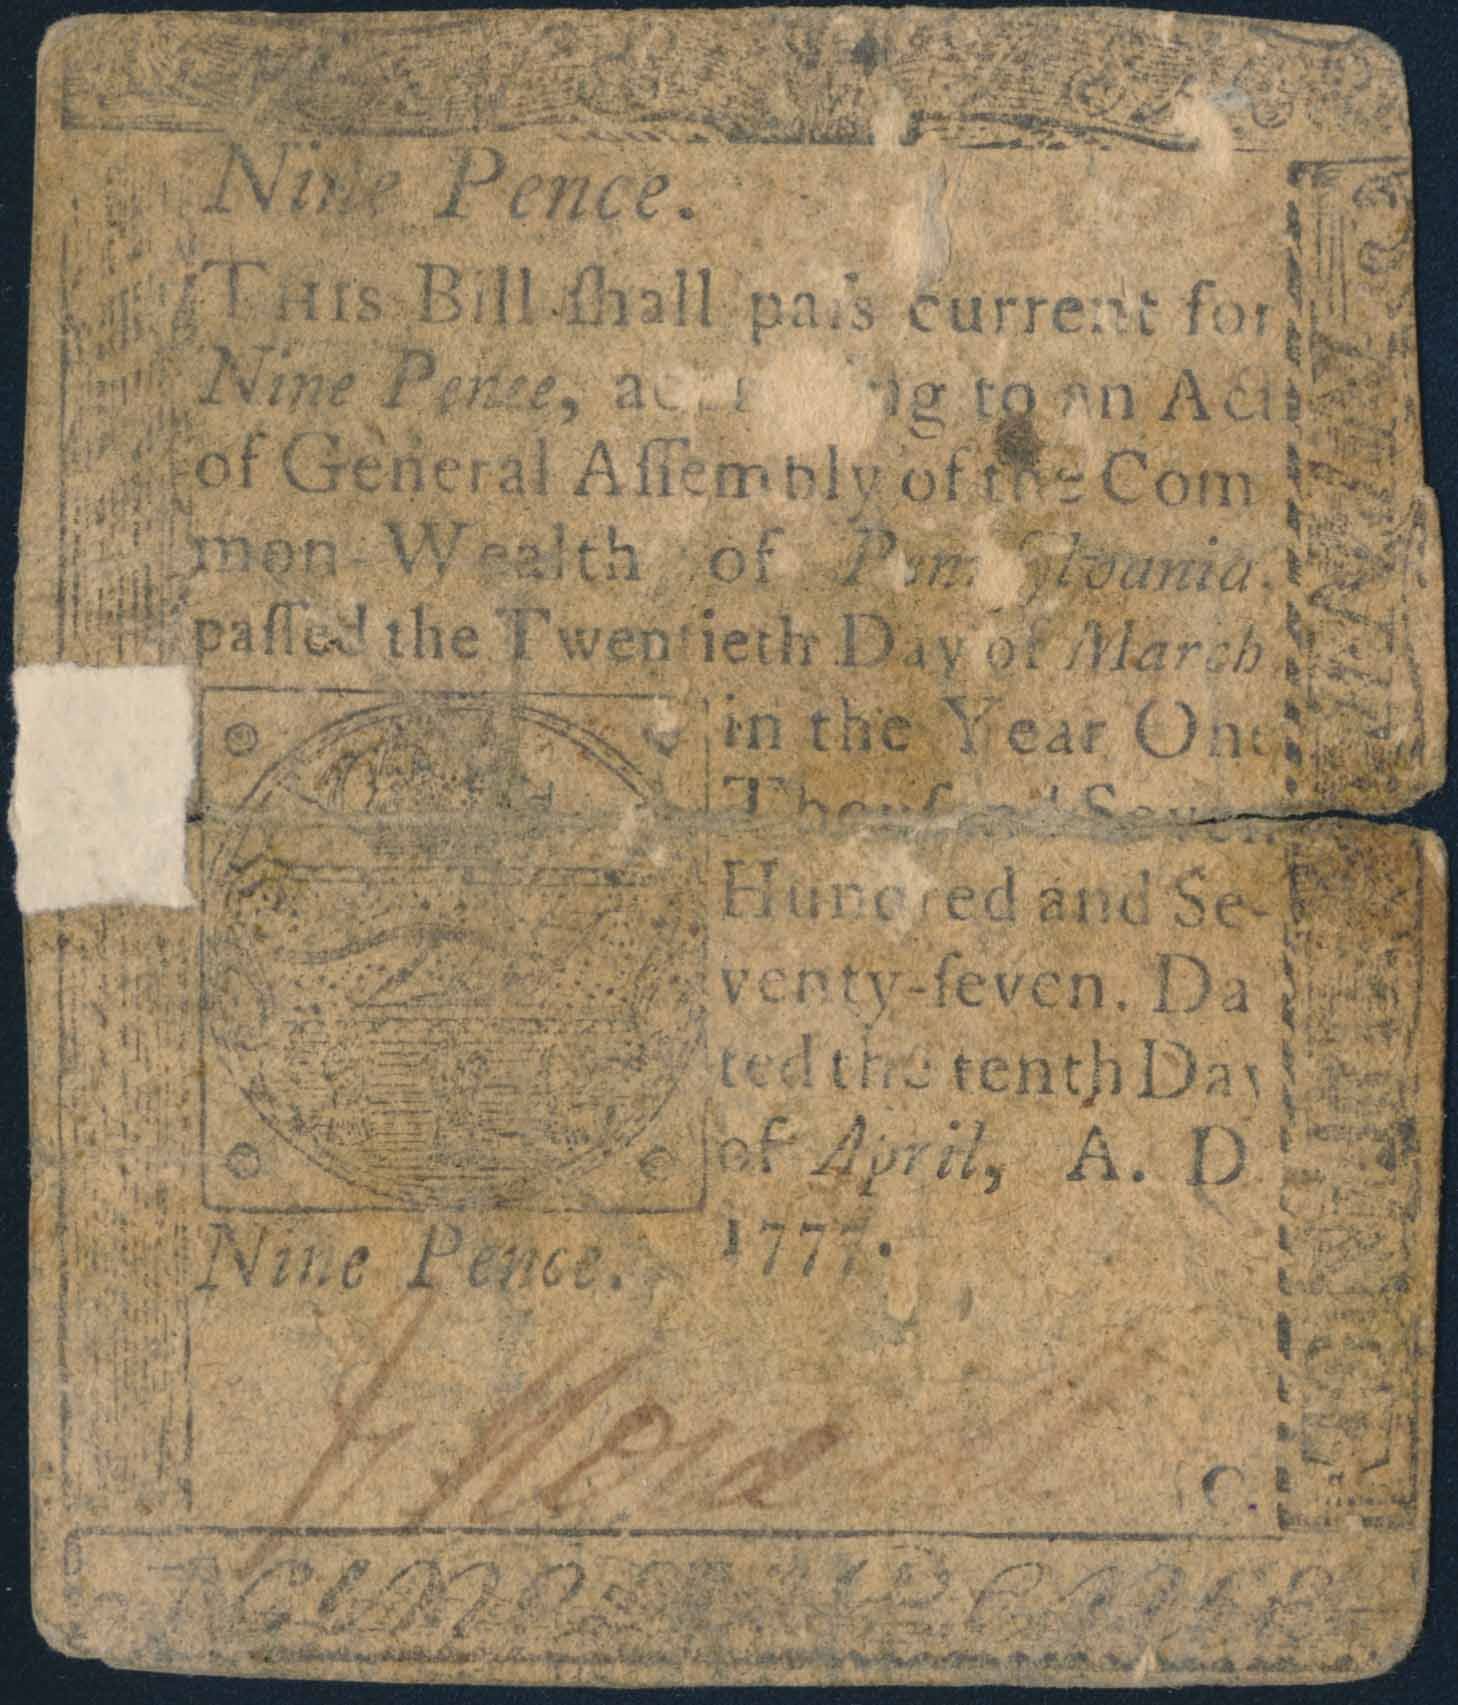 Nine Pence.
THIS Bill ſhall paſs current for
Nine Pence, according to an Act
of General Aſſembly of the Com
mon-Wealth of Pennſylvania.
paſſed the Twentieth Day of March
in the Year One
Thouſand Seven
Hundred and Se-
venty-ſeven. Da
ted the tenth Day
of April, A. D
1777.
Nine Pence.